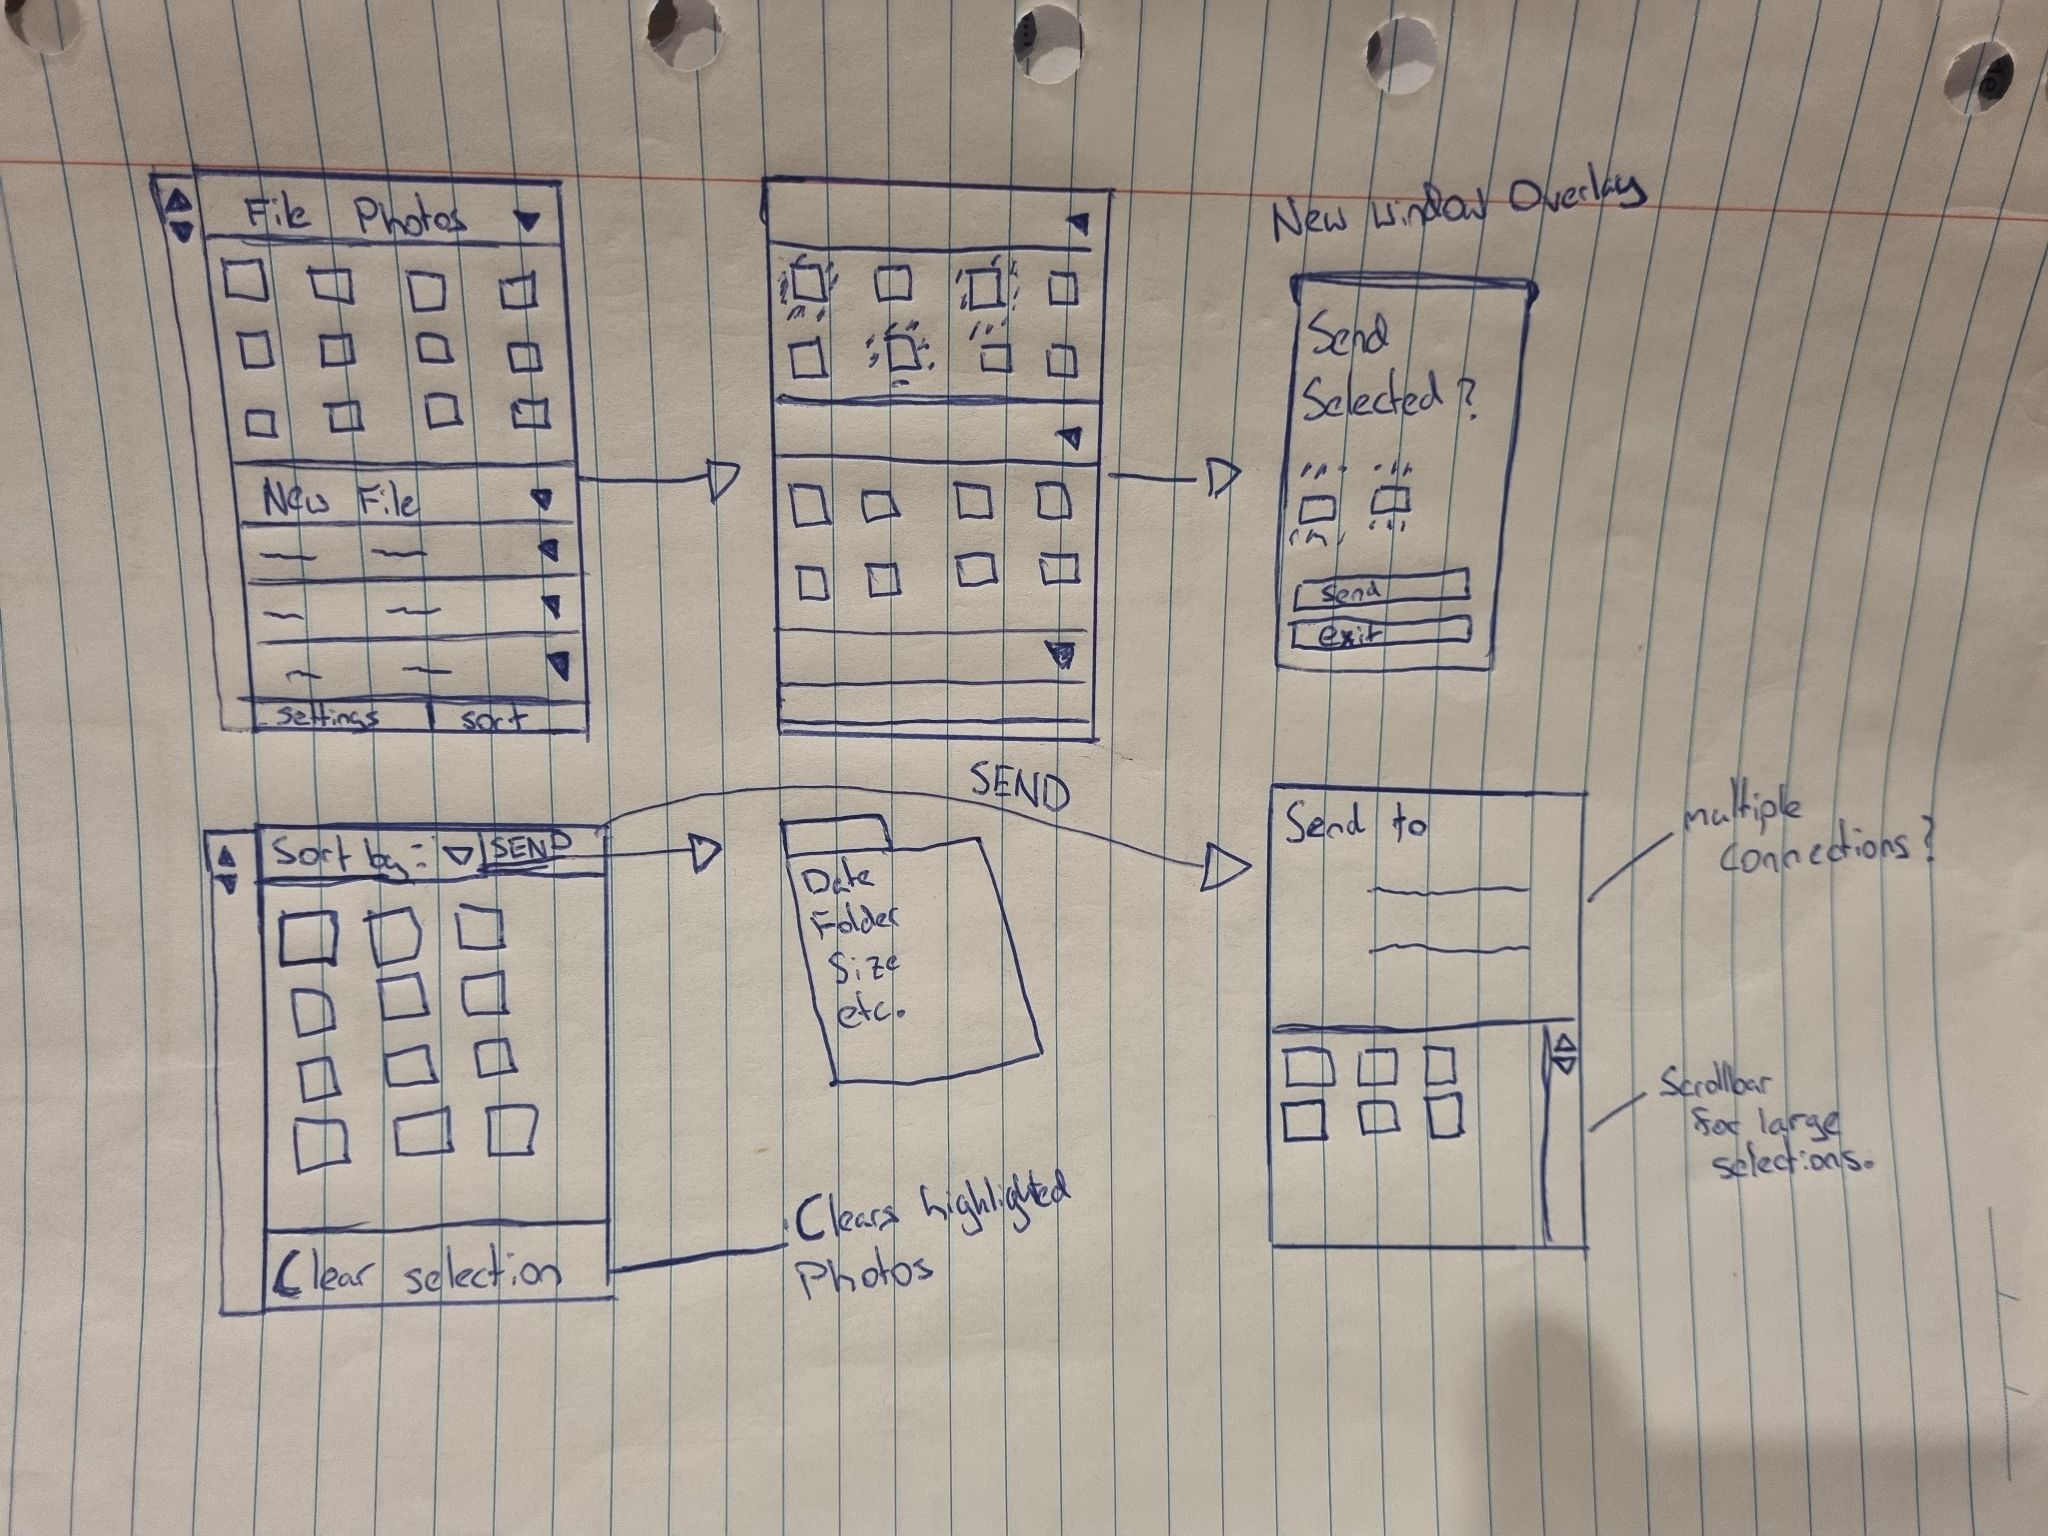 File Photos
New File
settings sort
New window Overlay
Send
Selected?
send
exit
Sort by: SEND
Clear selection
SEND
Date
Folder
Size
etc.
Clears highlighted
Photos
Send to
multiple
connections?
Scrollbar
for large
selections.